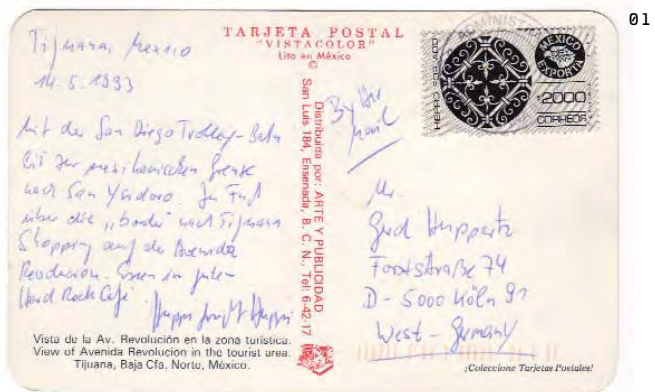 01
TARJETA POSTAL
"VISTACOLOR"
Lito en México
©
Tijuana, Mexico
14.5.1993
Mit der San Diego Trolley-Bahn
bis zur mexikanischen Grenze
nach San Ysidoro. Zu Fuß
über die "border" nach Tijuana
Shopping auf der Avenida
Revolucion. Essen im
Hard Rock Café.
Vista de la Av. Revolución en la zona turística.
View of Avenida Revolucion in the tourist area.
Tijuana, Baja Cfa. Norte, México.
Distribuida por: ARTE Y PUBLICIDAD
San Luis 184, Ensenada, B. C. N., Tel: 6-42-17
By Air
Mail
ADMINIST
MEXICO
EXPORTA
2000
CORREOS
Mr.
Gerd Huppertz
Forststraße 74
D-5000 Köln 91
West-Germany
¡Coleccione Tarjetas Postales!